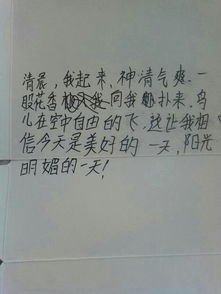 清晨，我起来，神清气爽、一
股花香向我扑来，鸟
儿在空中自由的飞，这让我相
信今天是美好的一天，阳光
明媚的一天！